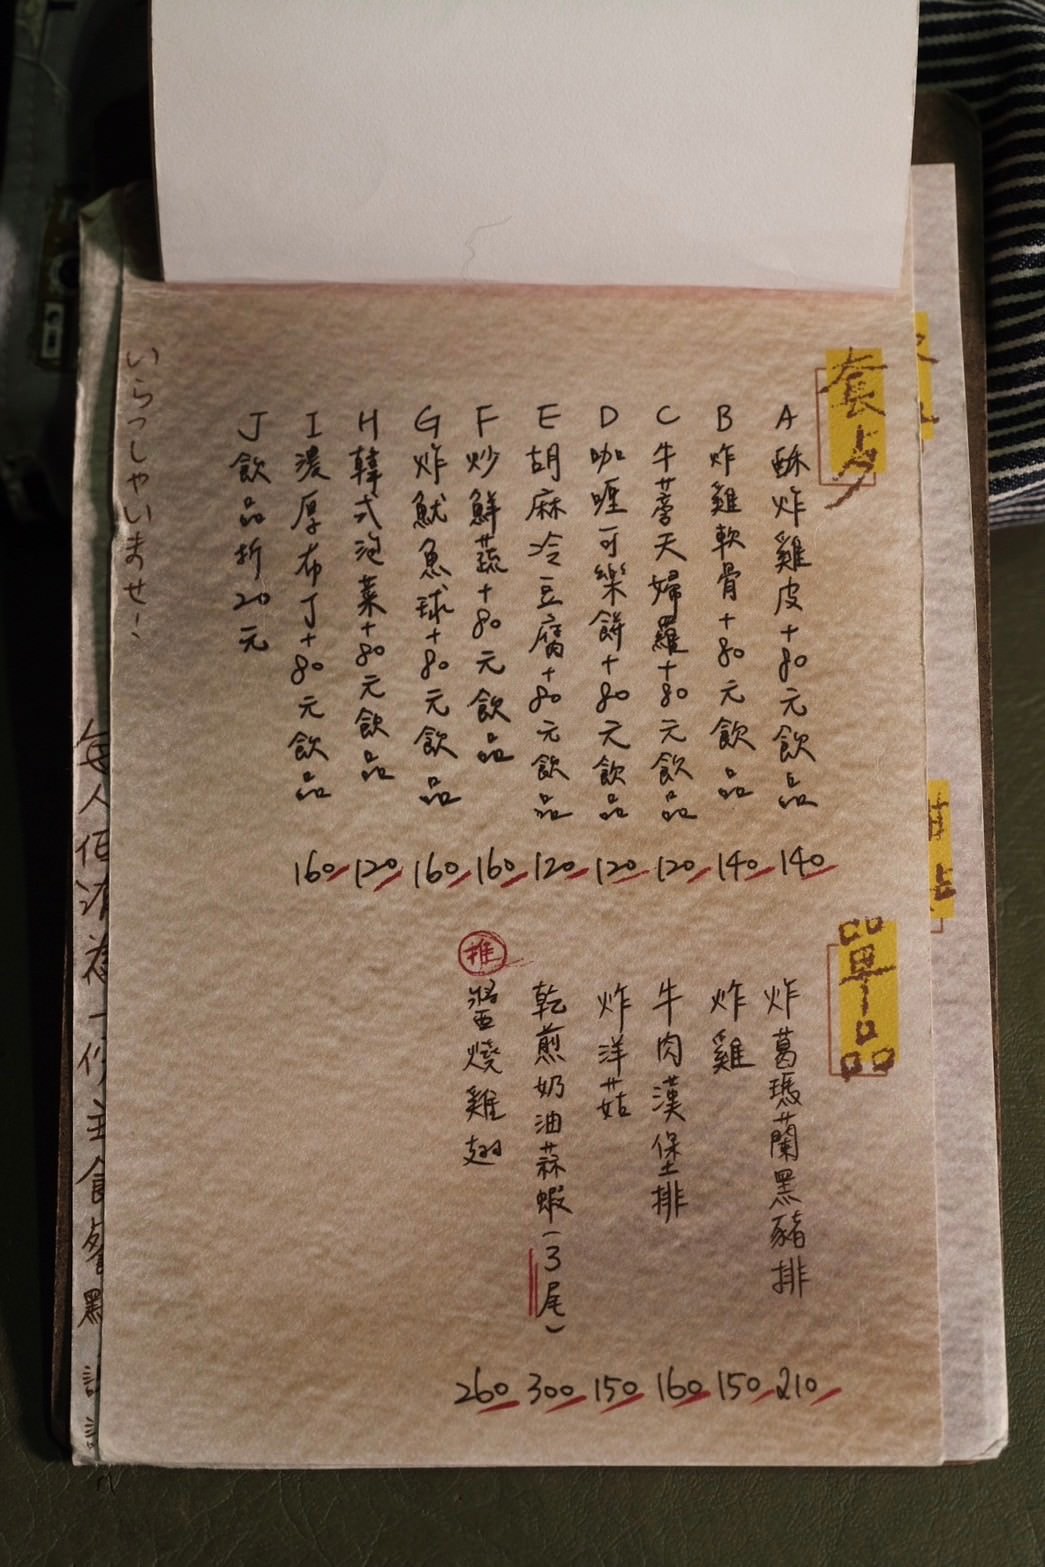 套餐
A 酥炸雞皮+80元飲品 140
B 炸雞軟骨+80元飲品 140
C 牛蒡天婦羅+80元飲品 120
D 咖喱可樂餅+80元飲品 120
E 胡麻冷豆腐+80元飲品 120
F 炒鮮蔬+80元飲品 160
G 炸魷魚球+80元飲品 160
H 韓式泡菜+80元飲品 120
I 濃厚布丁+80元飲品 160
J 飲品折20元
單品
炸葛瑪蘭黑豬排 210
炸雞 150
牛肉漢堡排 160
炸洋菇 150
乾煎奶油蒜蝦(3尾) 300
推 醬燒雞翅 260
いらっしゃいませ
每人低消為一份主食